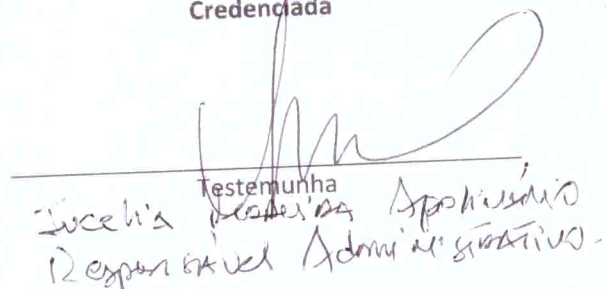 Credenciada
Testemunha
Iucelia Apolinário
Responsável Administrativo.